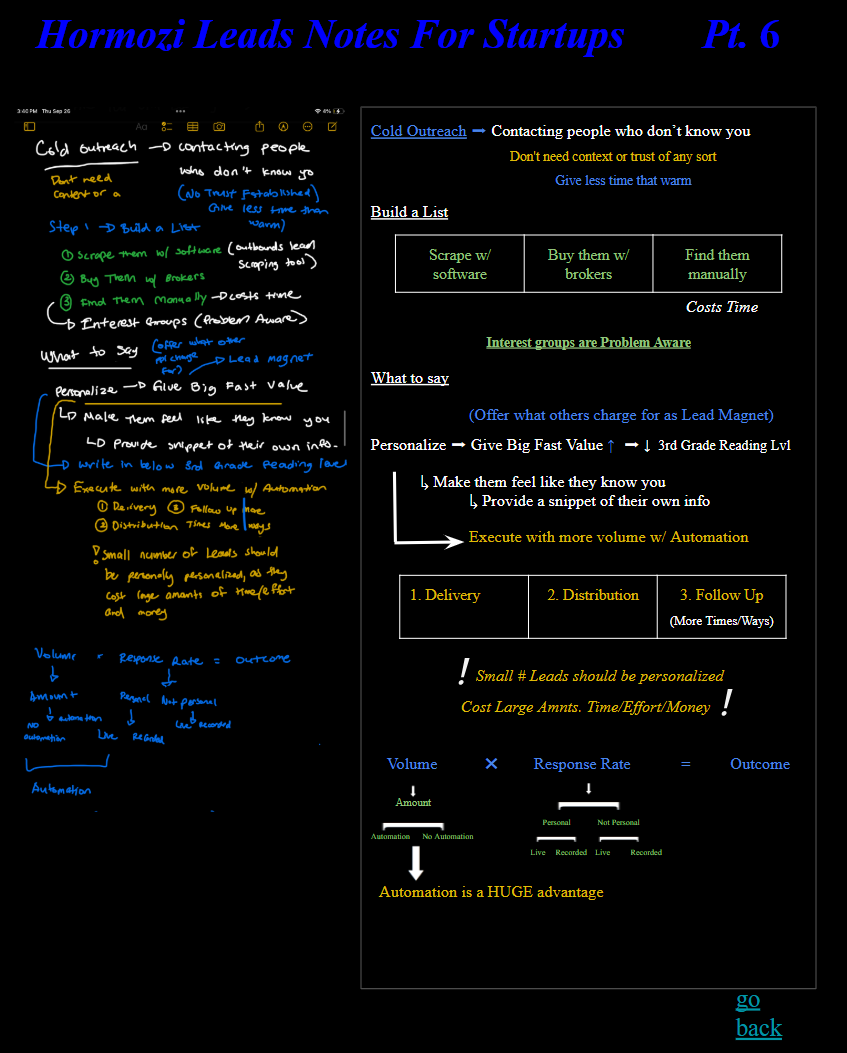 Hormozi Leads Notes For Startups Pt. 6
3:40 PM Thu Sep 26
4%
Aa
Cold outreach → contacting people
who don't know yo
Don't need
context or a
(No Trust Established)
Give less time than
warm)
Step 1 → Build a List
① Scrape them w/ software (outbounds lead
Scraping tool)
② Buy Them w/ Brokers
③ Find Them Manually → costs time
↳ Interest Groups (Problem Aware)
What to say
(offer what other
ppl charge
for)
→ Lead Magnet
Personalize → Give Big Fast Value
↳ Make them feel like they know you
↳ Provide snippet of their own info.
→ Write in below 3rd Grade Reading level
→ Execute with more volume w/ Automation
① Delivery ③ Follow up more
② Distribution Times More ways
! Small number of Leads should
be personally personalized, as they
cost large amounts of time/effort
and money
Volume · Response Rate = outcome
Amount
Personal Not personal
NO automation
automation
Live Recorded
Live Recorded
Automation
Cold Outreach → Contacting people who don't know you
Don't need context or trust of any sort
Give less time that warm
Build a List
Scrape w/
software
Buy them w/
brokers
Find them
manually
Costs Time
Interest groups are Problem Aware
What to say
(Offer what others charge for as Lead Magnet)
Personalize → Give Big Fast Value ↑ → ↓ 3rd Grade Reading Lvl
↳ Make them feel like they know you
↳ Provide a snippet of their own info
Execute with more volume w/ Automation
1. Delivery
2. Distribution
3. Follow Up
(More Times/Ways)
! Small # Leads should be personalized
Cost Large Amnts. Time/Effort/Money !
Volume × Response Rate = Outcome
Amount
Personal Not Personal
Automation No Automation
Live Recorded Live Recorded
Automation is a HUGE advantage
go
back